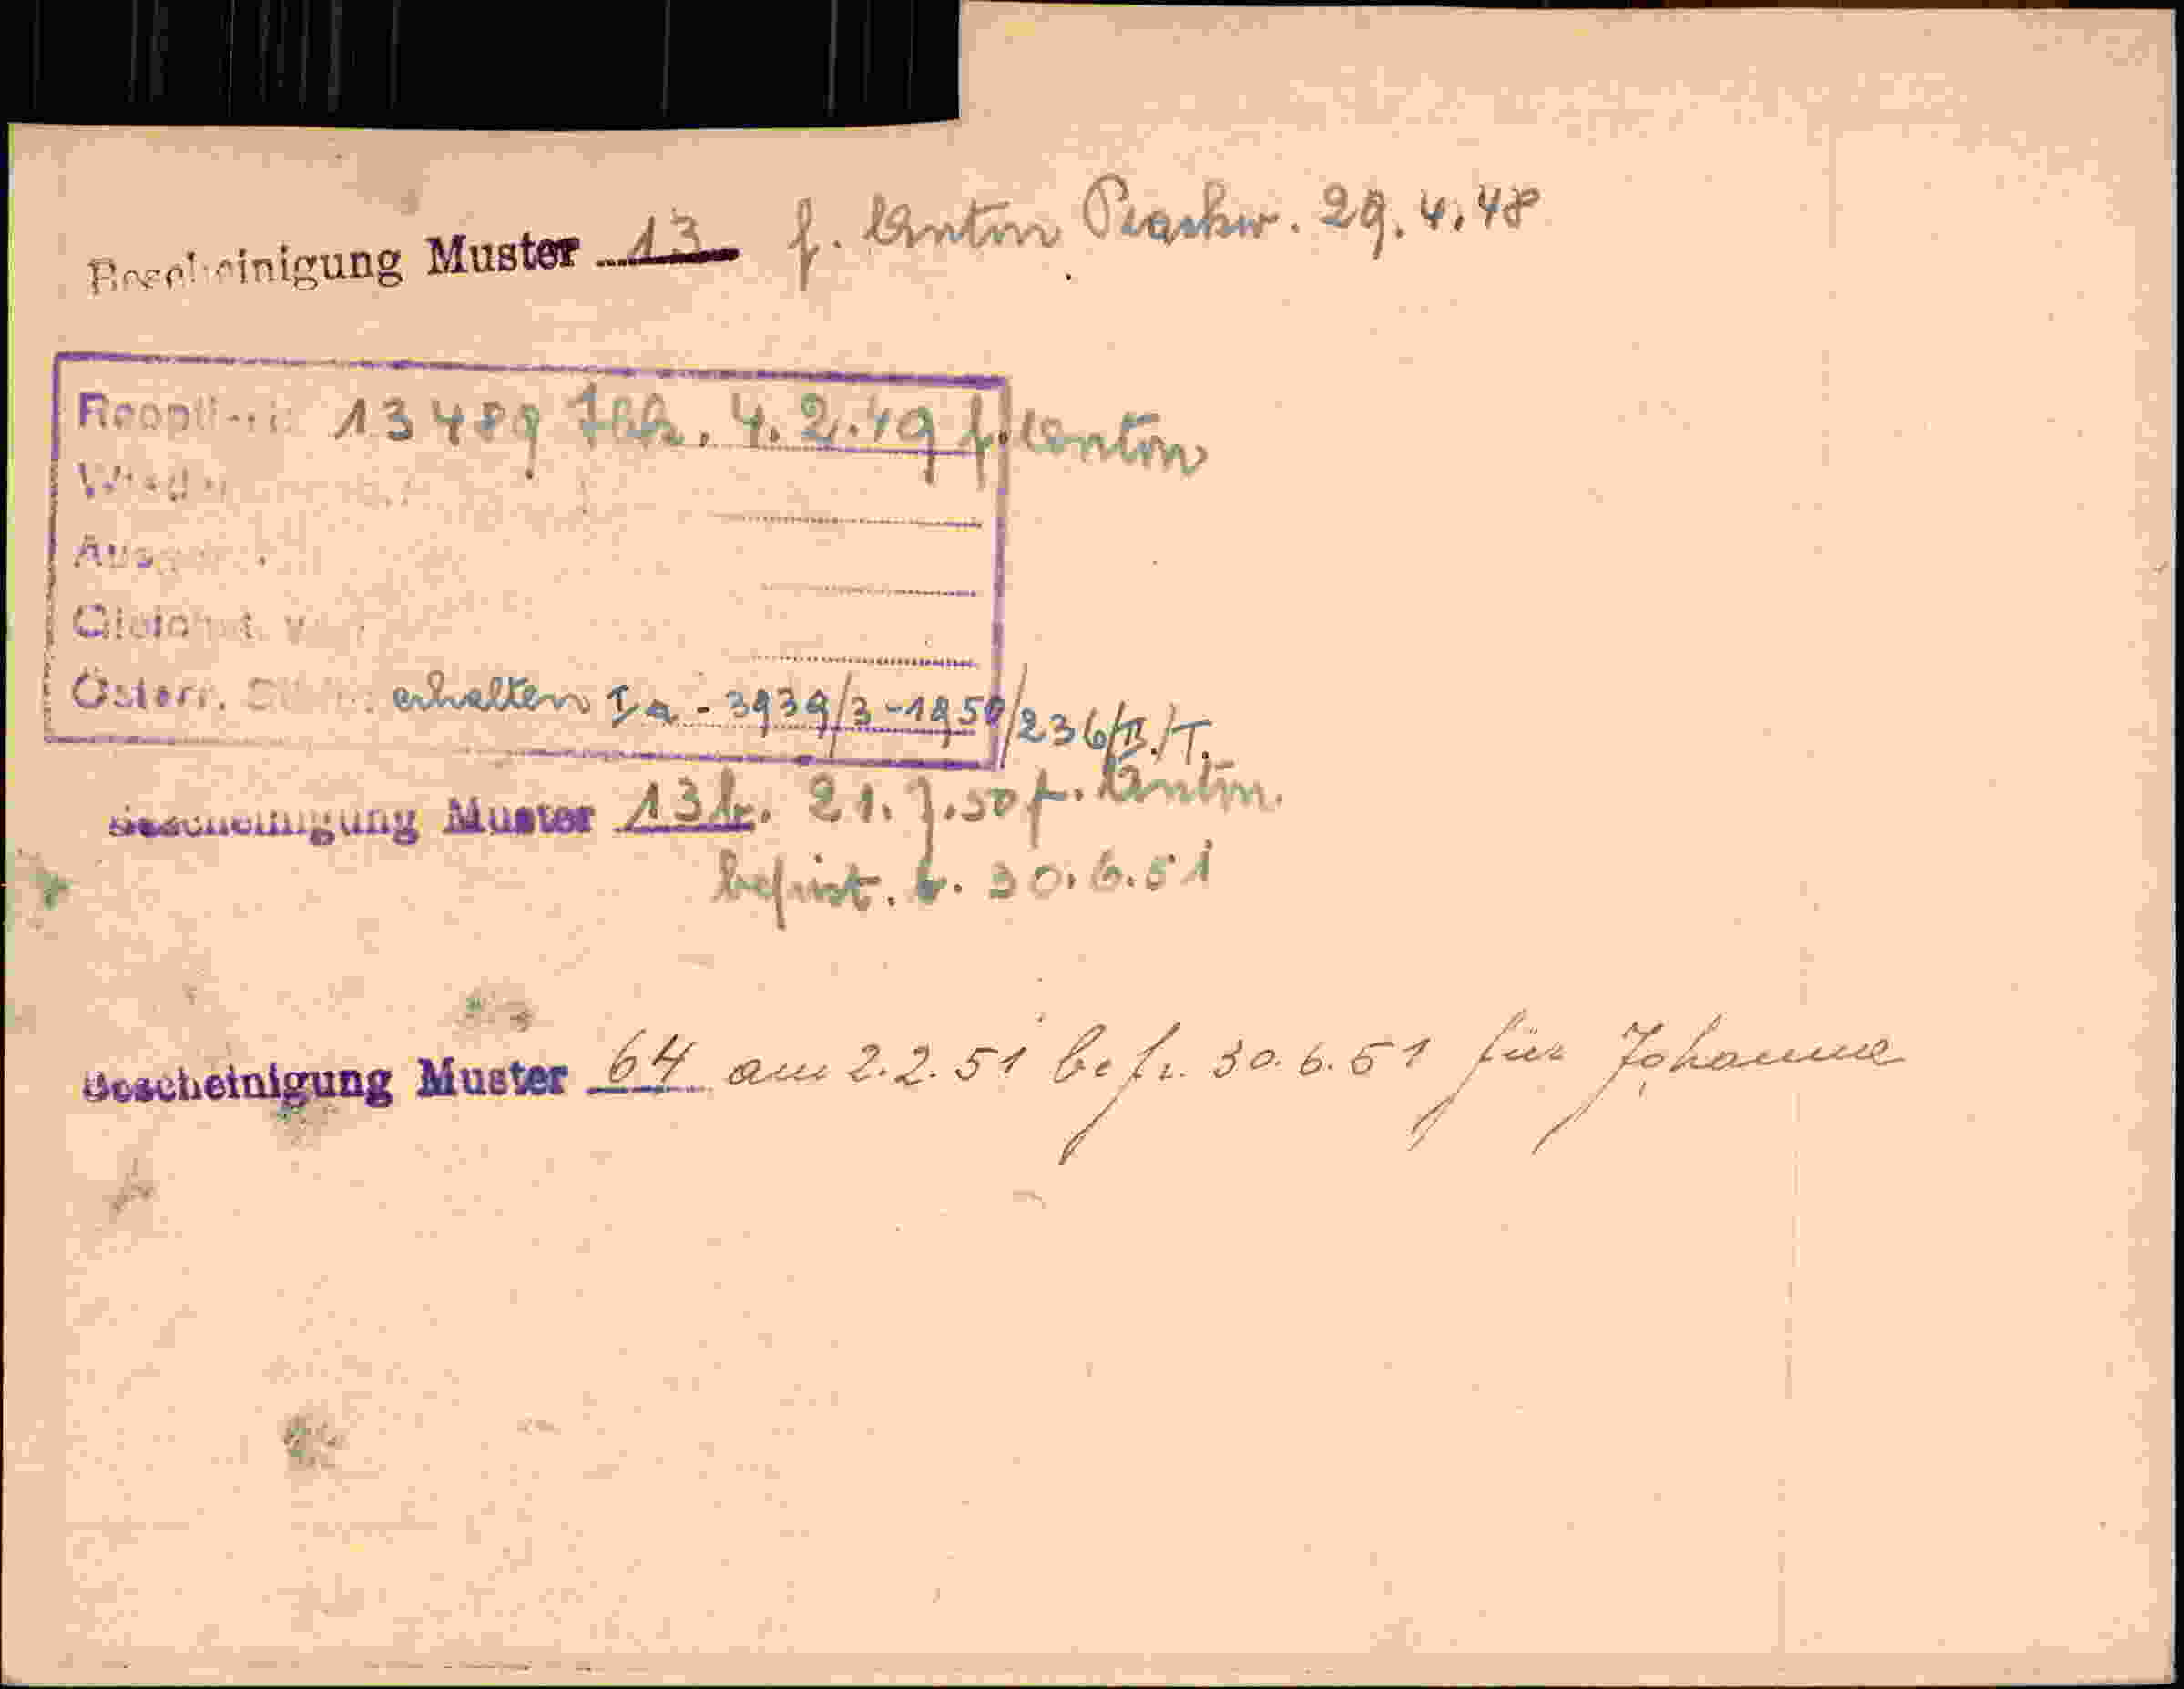 Bescheinigung Muster 13 f. Anton 29.4.48
13489 4.2.49 f. Anton
Österr. erhalten Ia - 3939/3-1950/236/II./T.
Bescheinigung Muster 13b. 21.7.50 f. Anton.
befrist. b. 30.6.51
Bescheinigung Muster 64 am 2.2.51 befr. 30.6.51 für Johanne